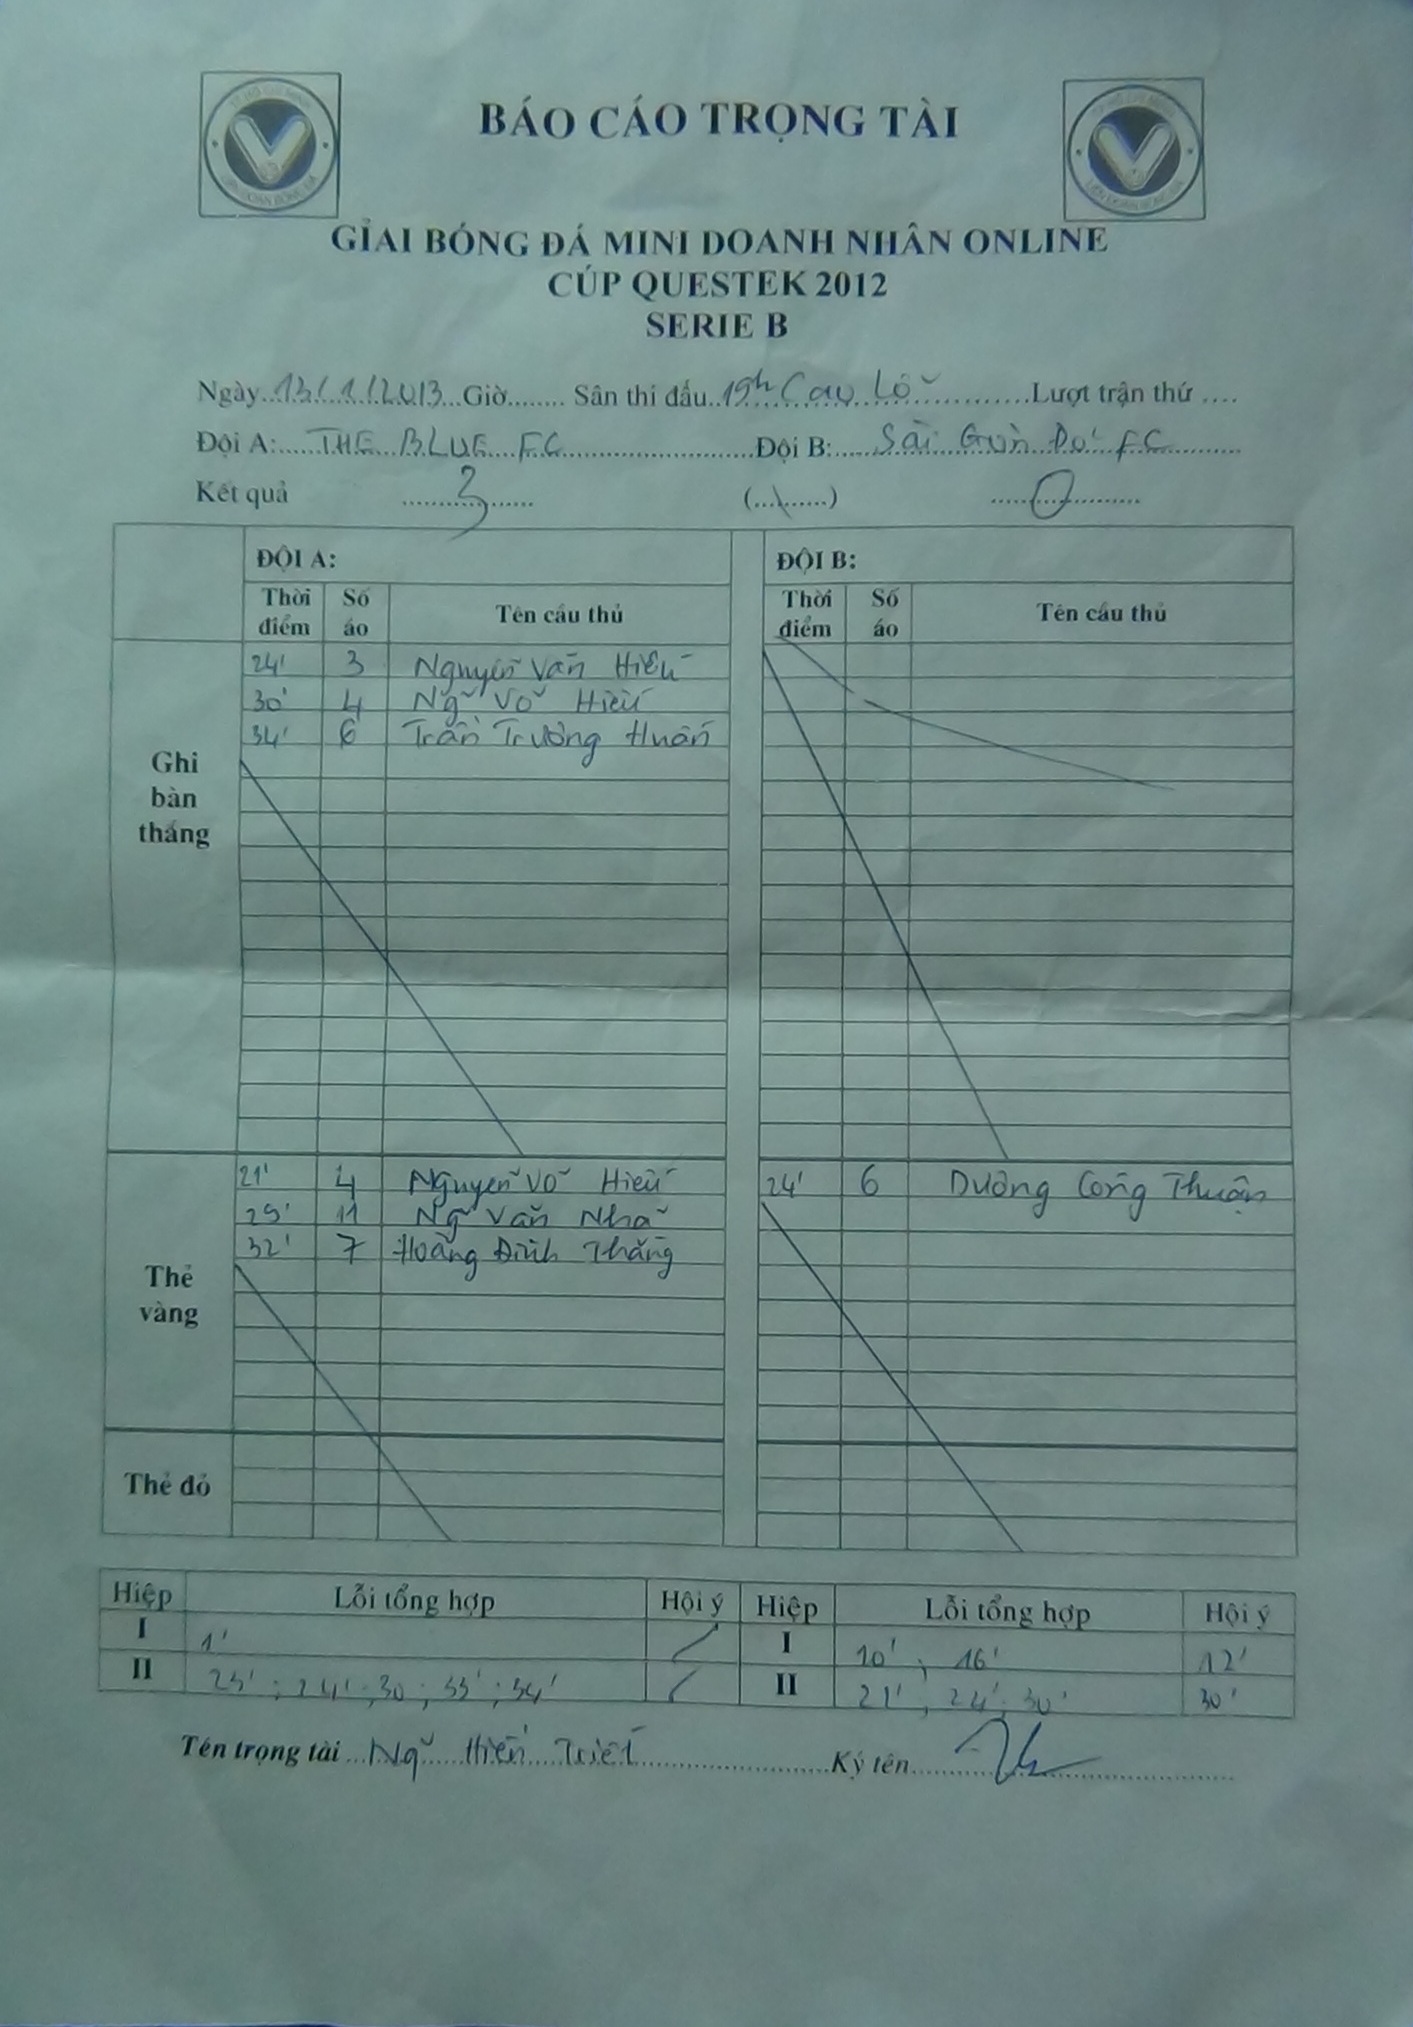 BÁO CÁO TRỌNG TÀI
GIẢI BÓNG ĐÁ MINI DOANH NHÂN ONLINE
CÚP QUESTEK 2012
SERIE B
Ngày 13/1/2013 Giờ........ Sân thi đấu 19h Cao Lỗ Lượt trận thứ ....
Đội A: THE BLUE FC Đội B: Sài Gòn FC
Kết quả 3 (...\......) 0
ĐỘI A: ĐỘI B:
Thời điểm Số áo Tên cầu thủ Thời điểm Số áo Tên cầu thủ
Ghi bàn thắng
24' 3 Nguyễn Văn Hiếu
30' 4 Ng~ Võ Hiếu
34' 6 Trần Trường Huấn
Thẻ vàng
21' 4 Nguyễn Võ Hiếu 24' 6 Dương Công Thuận
29' 11 Ng~ Văn Nhã
32' 7 Hoàng Đình Thăng
Thẻ đỏ
Hiệp Lỗi tổng hợp Hội ý Hiệp Lỗi tổng hợp Hội ý
I 1' I 10' ; 16' 12'
II 23' ; 24' ; 30 ; 33' ; 34' II 21' ; 24' ; 30' 30'
Tên trọng tài Ng~ Hiền Triết Ký tên